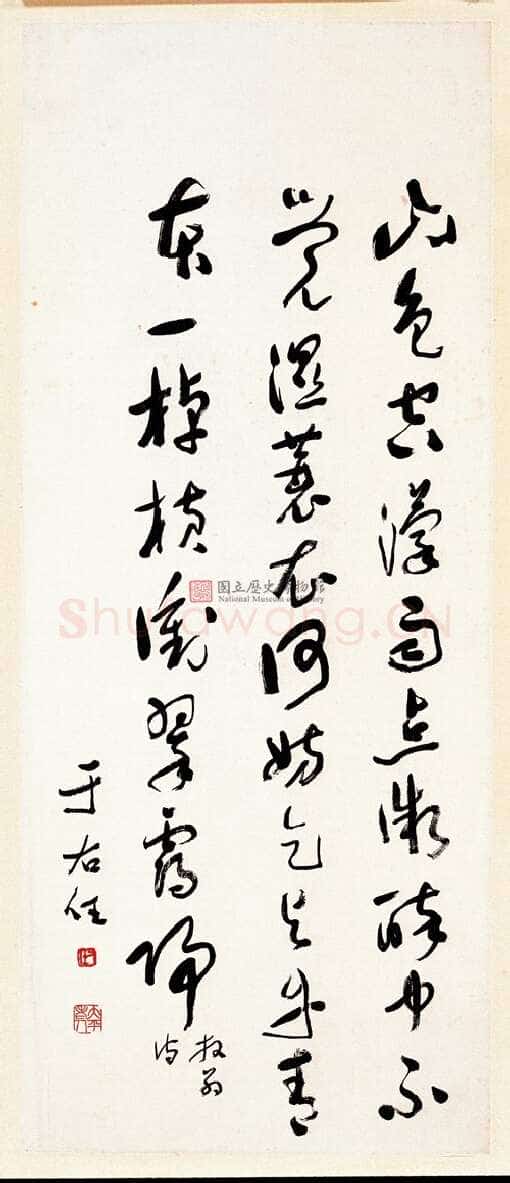 山色空濛雨点微醉中不
覺濕蓑衣何妨乞與丹青
本一棹橫衝翠靄歸
放翁
詩
于右任
國立歷史博物館
National Museum of History
Shufawang.CN